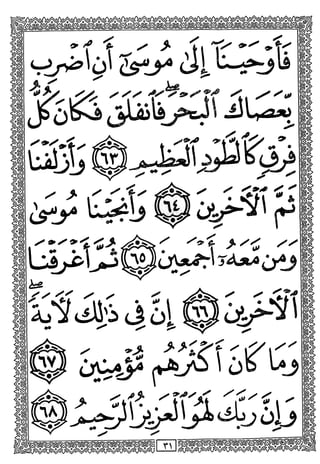 فَأَوْحَيْنَآ إِلَىٰ مُوسَىٰٓ أَنِ ٱضْرِب
بِّعَصَاكَ ٱلْبَحْرَ ۖ فَٱنفَلَقَ فَكَانَ كُلُّ
فِرْقٍ كَٱلطَّوْدِ ٱلْعَظِيمِ ٦٣ وَأَزْلَفْنَا
ثَمَّ ٱلْأَخَرِينَ ٦٤ وَأَنجَيْنَا مُوسَىٰ
وَمَن مَّعَهُۥٓ أَجْمَعِينَ ٦٥ ثُمَّ أَغْرَقْنَا
ٱلْأَخَرِينَ ٦٦ إِنَّ فِى ذَٰلِكَ لَأَيَةً ۖ
وَمَا كَانَ أَكْثَرُهُم مُّؤْمِنِينَ ٦٧
وَإِنَّ رَبَّكَ لَهُوَ ٱلْعَزِيزُ ٱلرَّحِيمُ ٦٨
٣١